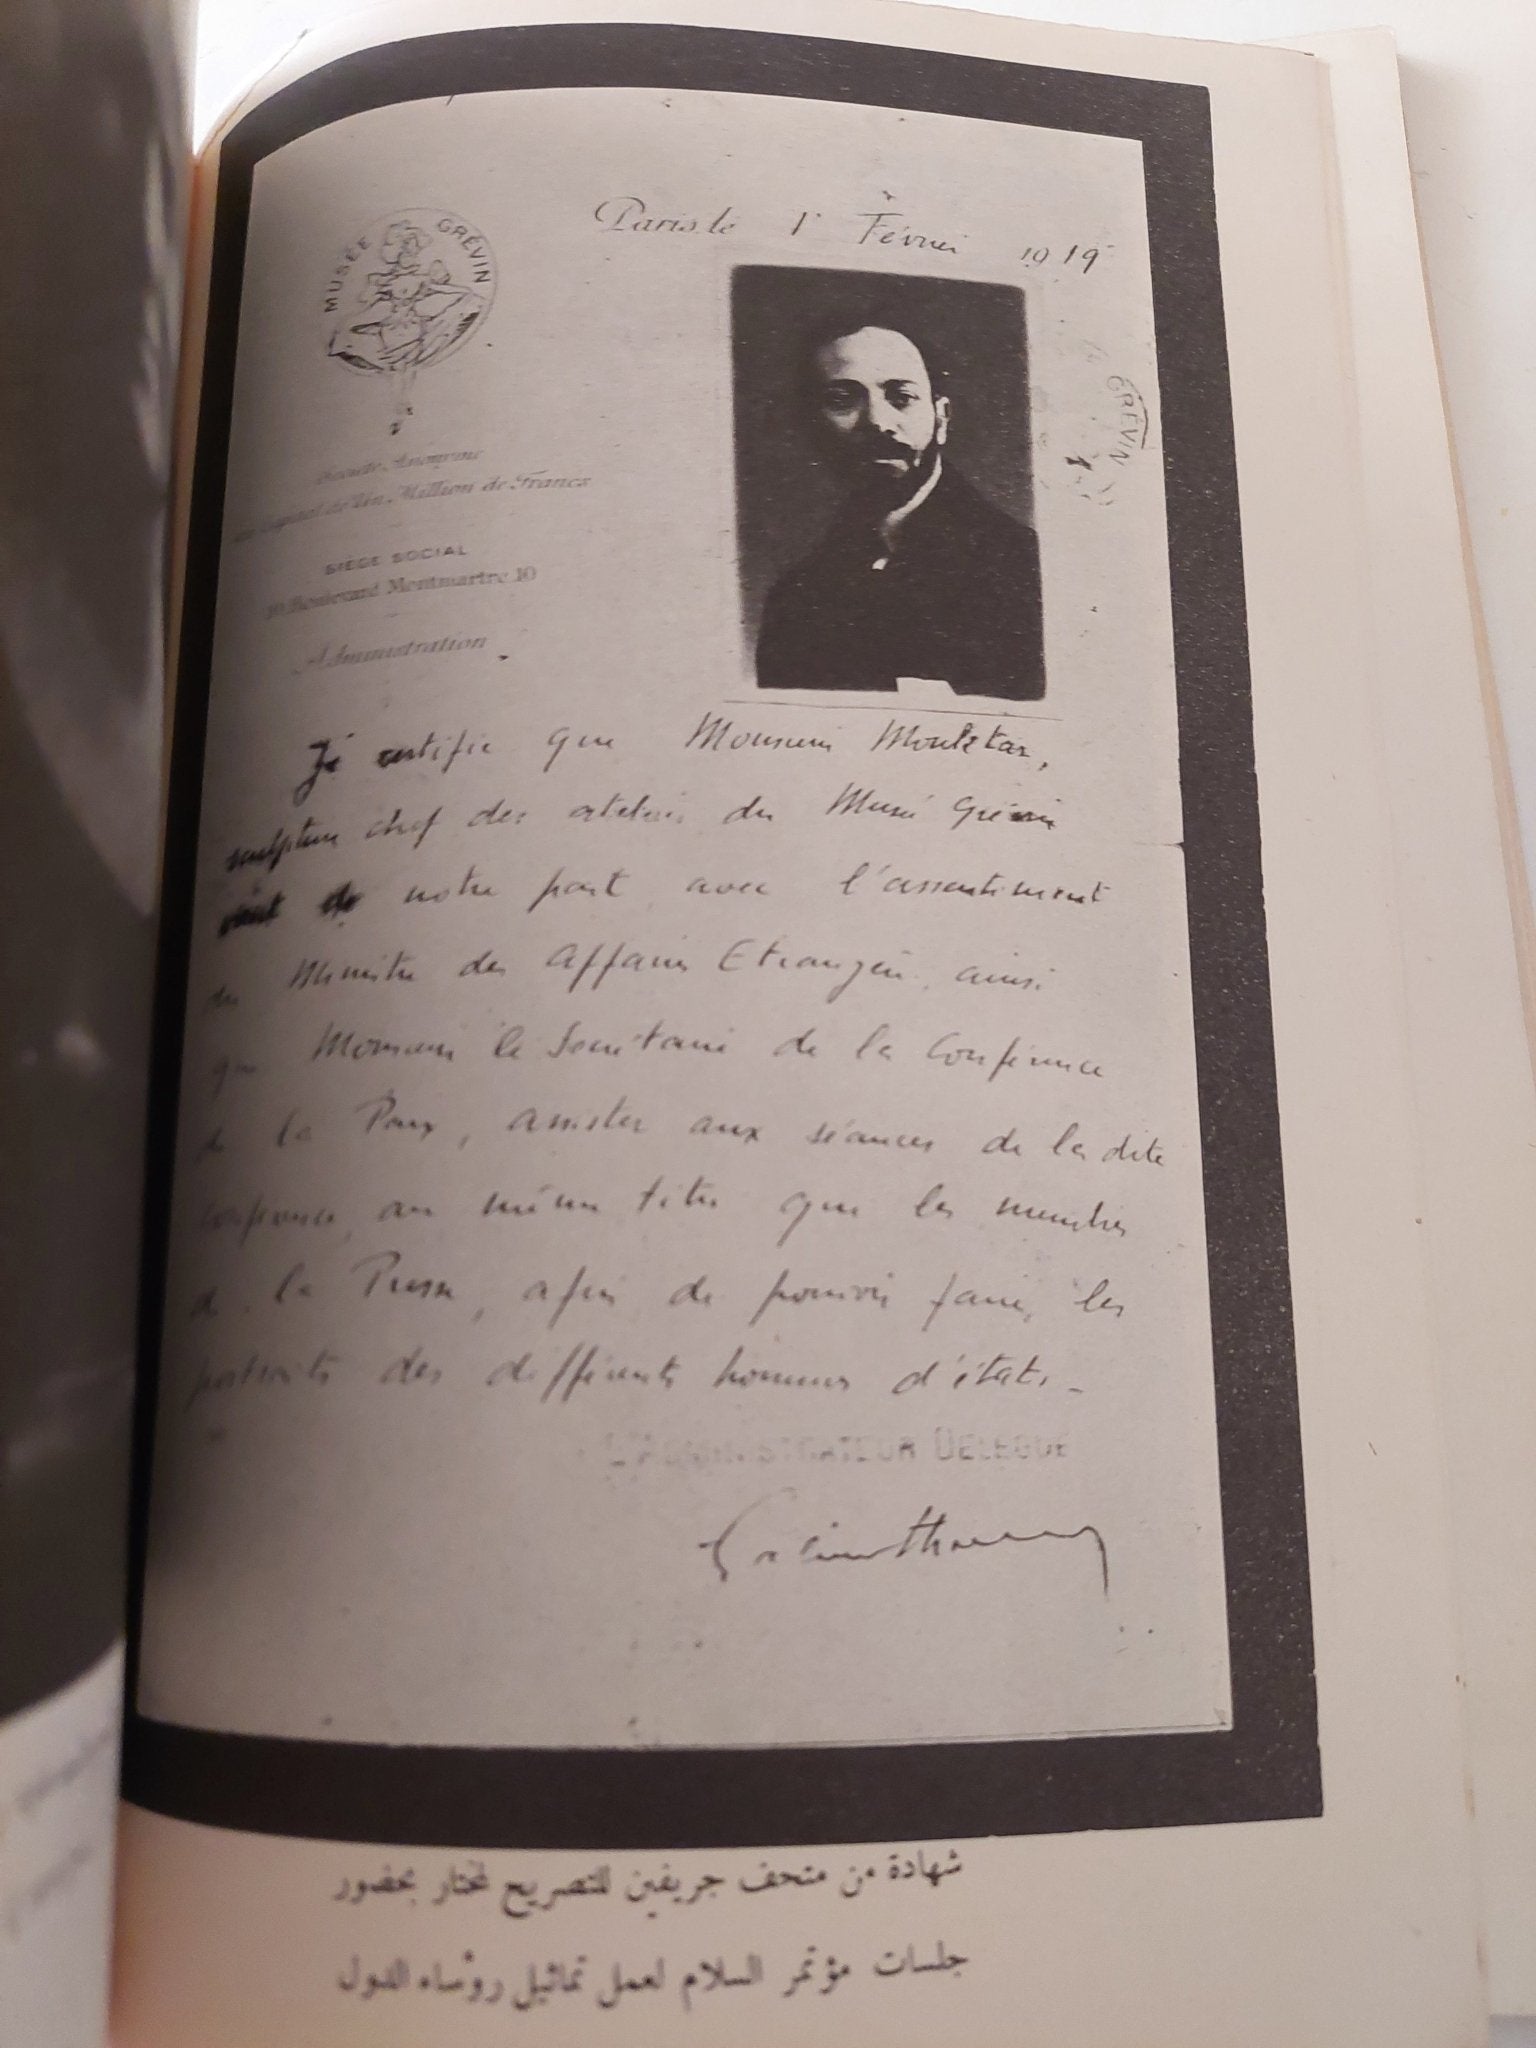 MUSÉE GRÉVIN
Paris, le 1er Février 1919
Société Anonyme
au Capital de Un Million de Francs
SIÈGE SOCIAL
10, Boulevard Montmartre, 10
Administration
GRÉVIN
Je certifie que Monsieur Mouktar,
sculpteur chef des ateliers du Musée Grévin
vient de notre part avec l'assentiment
du Ministre des Affaires Etrangères, ainsi
que Monsieur le Secrétaire de la Conférence
de la Paix, assister aux séances de la dite
conférence, au même titre que les membres
de la Presse, afin de pouvoir faire, les
portraits des différents hommes d'états.-
L'ADMINISTRATEUR DÉLÉGUÉ
شهادة من متحف جريفين للتصريح لمختار بحضور
جلسات مؤتمر السلام لعمل تماثيل رؤساء الدول